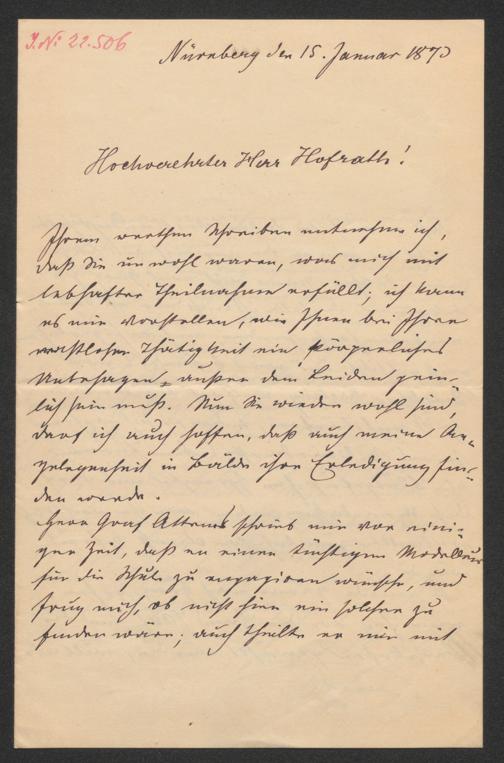 J. N: 22.506
Nürnberg den 15. Januar 1873
Hochverehrter Herr Hofrath!
Ihrem werthen Schreiben entnehme ich,
daß Sie unwohl waren, was mich mit
lebhafter Theilnahme erfüllt; ich kann
es mir vorstellen, wie Ihnen bei Ihrer
rastlosen Thätigkeit ein körperliches
Unbehagen außer dem Leiden pein-
lich sein muß. Nun Sie wieder wohl sind,
darf ich auch hoffen, daß auch meine An-
gelegenheit in Bälde ihre Erledigung fin-
den werde.
Herr Graf Attems schrieb mir vor eini-
ger Zeit, daß er einen tüchtigen Modelleur
für die Schule zu engagiren wünsche, und
frug mich, ob nicht hier ein solcher zu
finden wäre; auch theilte er mir mit